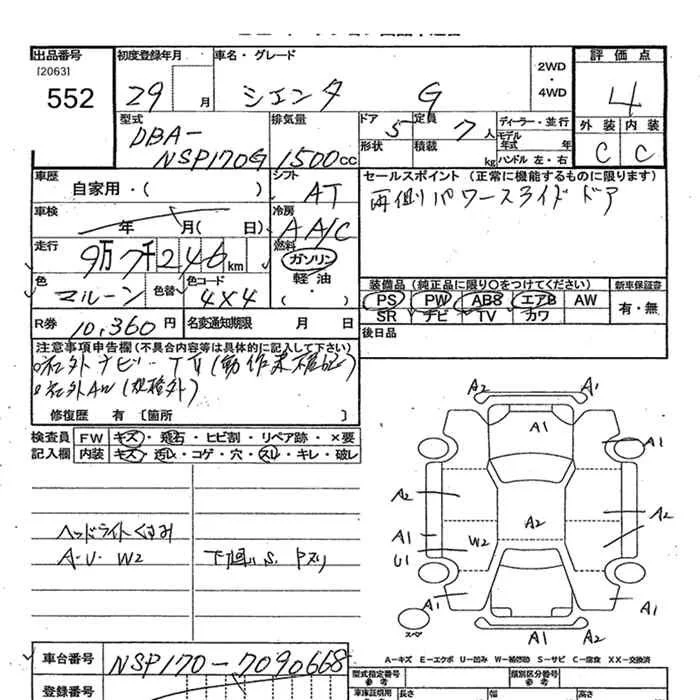 出品番号 初度登録年月 車名・グレード 評価点
[2063]
552 29 月 シエンタ G 2WD・4WD 4
型式 排気量 ドア 定員 ディーラー・並行 外装 内装
DBA- 5 7人 モデル年式 年 C C
NSP170G 1500cc 形状 積載 kg ハンドル 左・右
車歴 シフト セールスポイント (正常に機能するものに限ります)
自家用・( ) AT 両側パワースライドドア
車検 冷房
年 月( 日) AA/C
走行 燃料
9万7千246km ガソリン
色 色替 色コード 軽油 装備品(純正品に限り○をつけてください) 新車保証書
マルーン 4X4 ・( ) PS PW ABS エアB AW 有・無
SR ナビ TV カワ
R券 10,360円 名変通知期限 月 日 後日品
注意事項申告欄(不具合内容等は具体的に記入して下さい)
社外ナビ・TV(動作未確認)
社外AW(規格外)
修復歴 有 [箇所 ]
検査員 FW キズ・飛石・ヒビ割・リペア跡・×要
記入欄 内装 キズ・汚レ・コゲ・穴・スレ・キレ・破レ
A2 A1
A1 A1
A2 A2 A2
A1 W2
U1
A1 A1
スペア A1 A2
ヘッドライトくすみ
A・U・W2 下廻りS、Pズリ
A-キズ E-エクボ U-凹み W-補修跡 S-サビ C-腐食 XX-交換済
車台番号 NSP170-7090668 型式指定番号 類別区分番号
参考 参考
登録番号 車庫証明用 長さ 幅 高さ